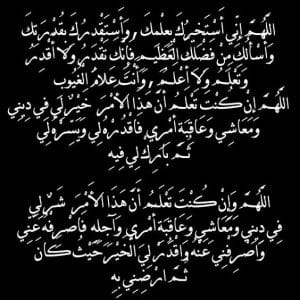 اللَّهُمَّ إِنِّي أَسْتَخِيرُكَ بِعِلْمِكَ , وَأَسْتَقْدِرُكَ بِقُدْرَتِكَ
وَأَسْأَلُكَ مِنْ فَضْلِكَ الْعَظِيمِ فَإِنَّكَ تَقْدِرُ وَلا أَقْدِرُ
وَتَعْلَمُ وَلا أَعْلَمُ , وَأَنْتَ عَلامُ الْغُيُوبِ
اللَّهُمَّ إِنْ كُنْتَ تَعْلَمُ أَنَّ هَذَا الأَمْرَ خَيْرٌ لِي فِي دِينِي
وَمَعَاشِي وَعَاقِبَةِ أَمْرِي فَاقْدُرْهُ لِي وَيَسِّرْهُ لِي
ثُمَّ بَارِكْ لِي فِيهِ
اللَّهُمَّ وَإِنْ كُنْتَ تَعْلَمُ أَنَّ هَذَا الأَمْرَ شَرٌّ لِي
فِي دِينِي وَمَعَاشِي وَعَاقِبَةِ أَمْرِي وَآجِلِهِ فَاصْرِفْهُ عَنِّي
وَاصْرِفْنِي عَنْهُ وَاقْدُرْ لِي الْخَيْرَ حَيْثُ كَانَ
ثُمَّ ارْضِنِي بِهِ